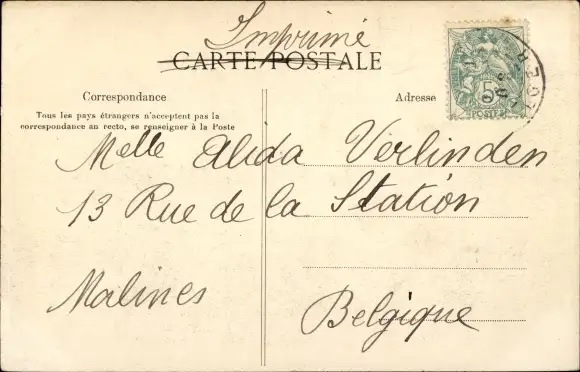 Imprimé
CARTE POSTALE
Correspondance
Adresse
Tous les pays étrangers n'acceptent pas la
correspondance au recto, se renseigner à la Poste
Melle Alida Verlinden
13 Rue de la Station
Malines
Belgique
5
POSTES